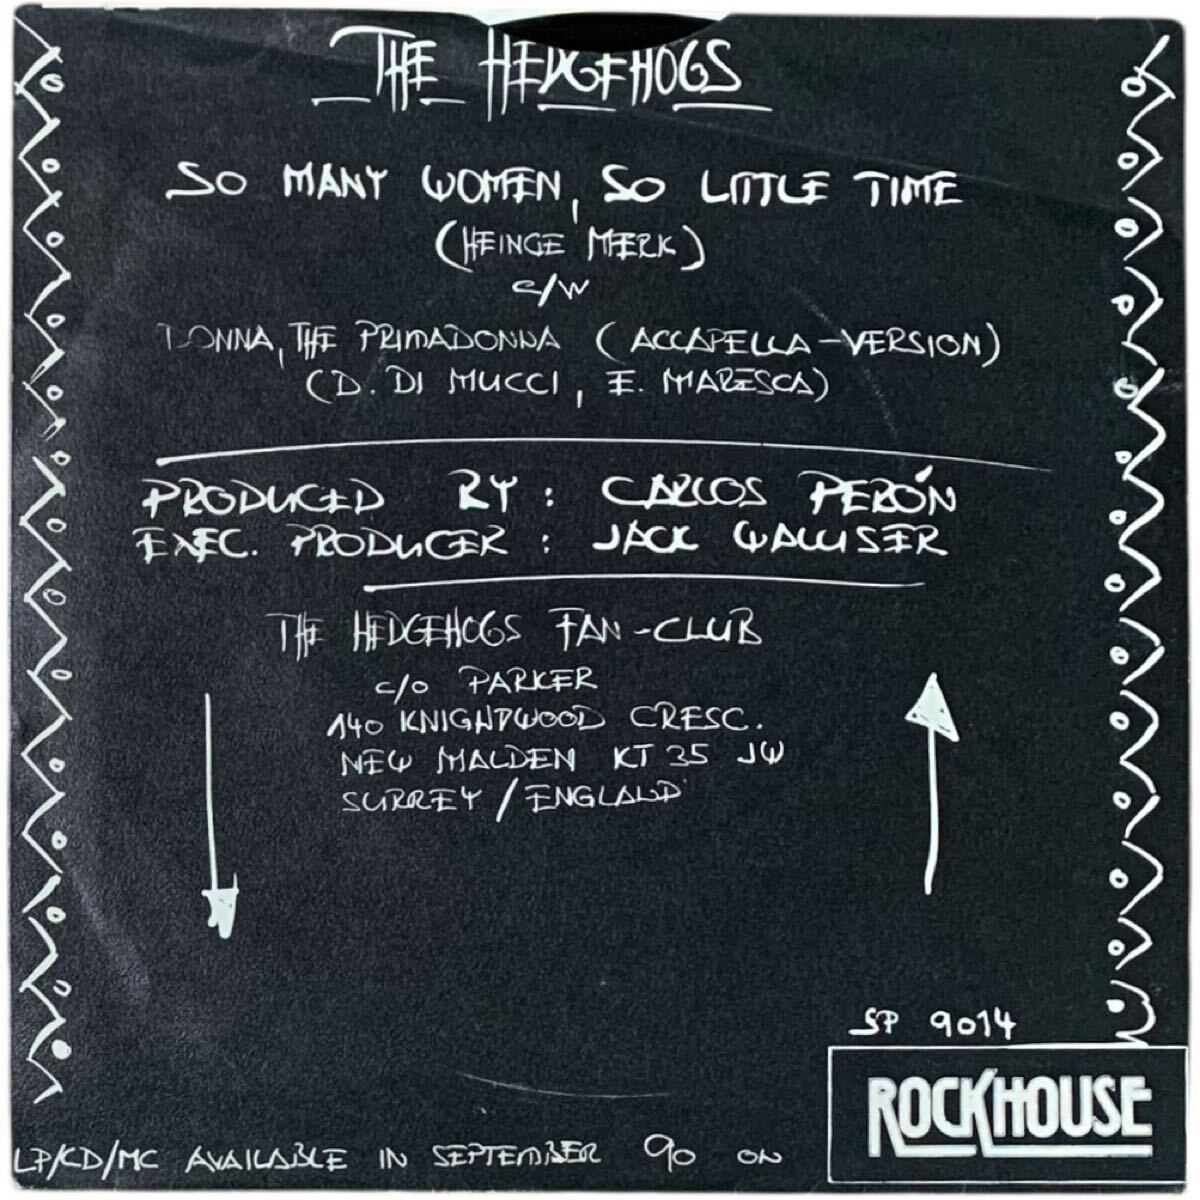 THE HEDGEHOGS
SO MANY WOMEN, SO LITTLE TIME
(HEINGE MERK)
c/w
DONNA, THE PRIMADONNA (ACCAPELLA-VERSION)
(D. DI MUCCI, E. MARESCA)
PRODUCED BY: CARLOS PERÓN
EXEC. PRODUCER: JACK WALLISER
THE HEDGEHOGS FAN-CLUB
c/o PARKER
140 KNIGHTWOOD CRESC.
NEW MALDEN KT 35 JW
SURREY / ENGLAND
SP 9014
ROCKHOUSE
LP/CD/MC AVAILABLE IN SEPTEMBER 90 ON